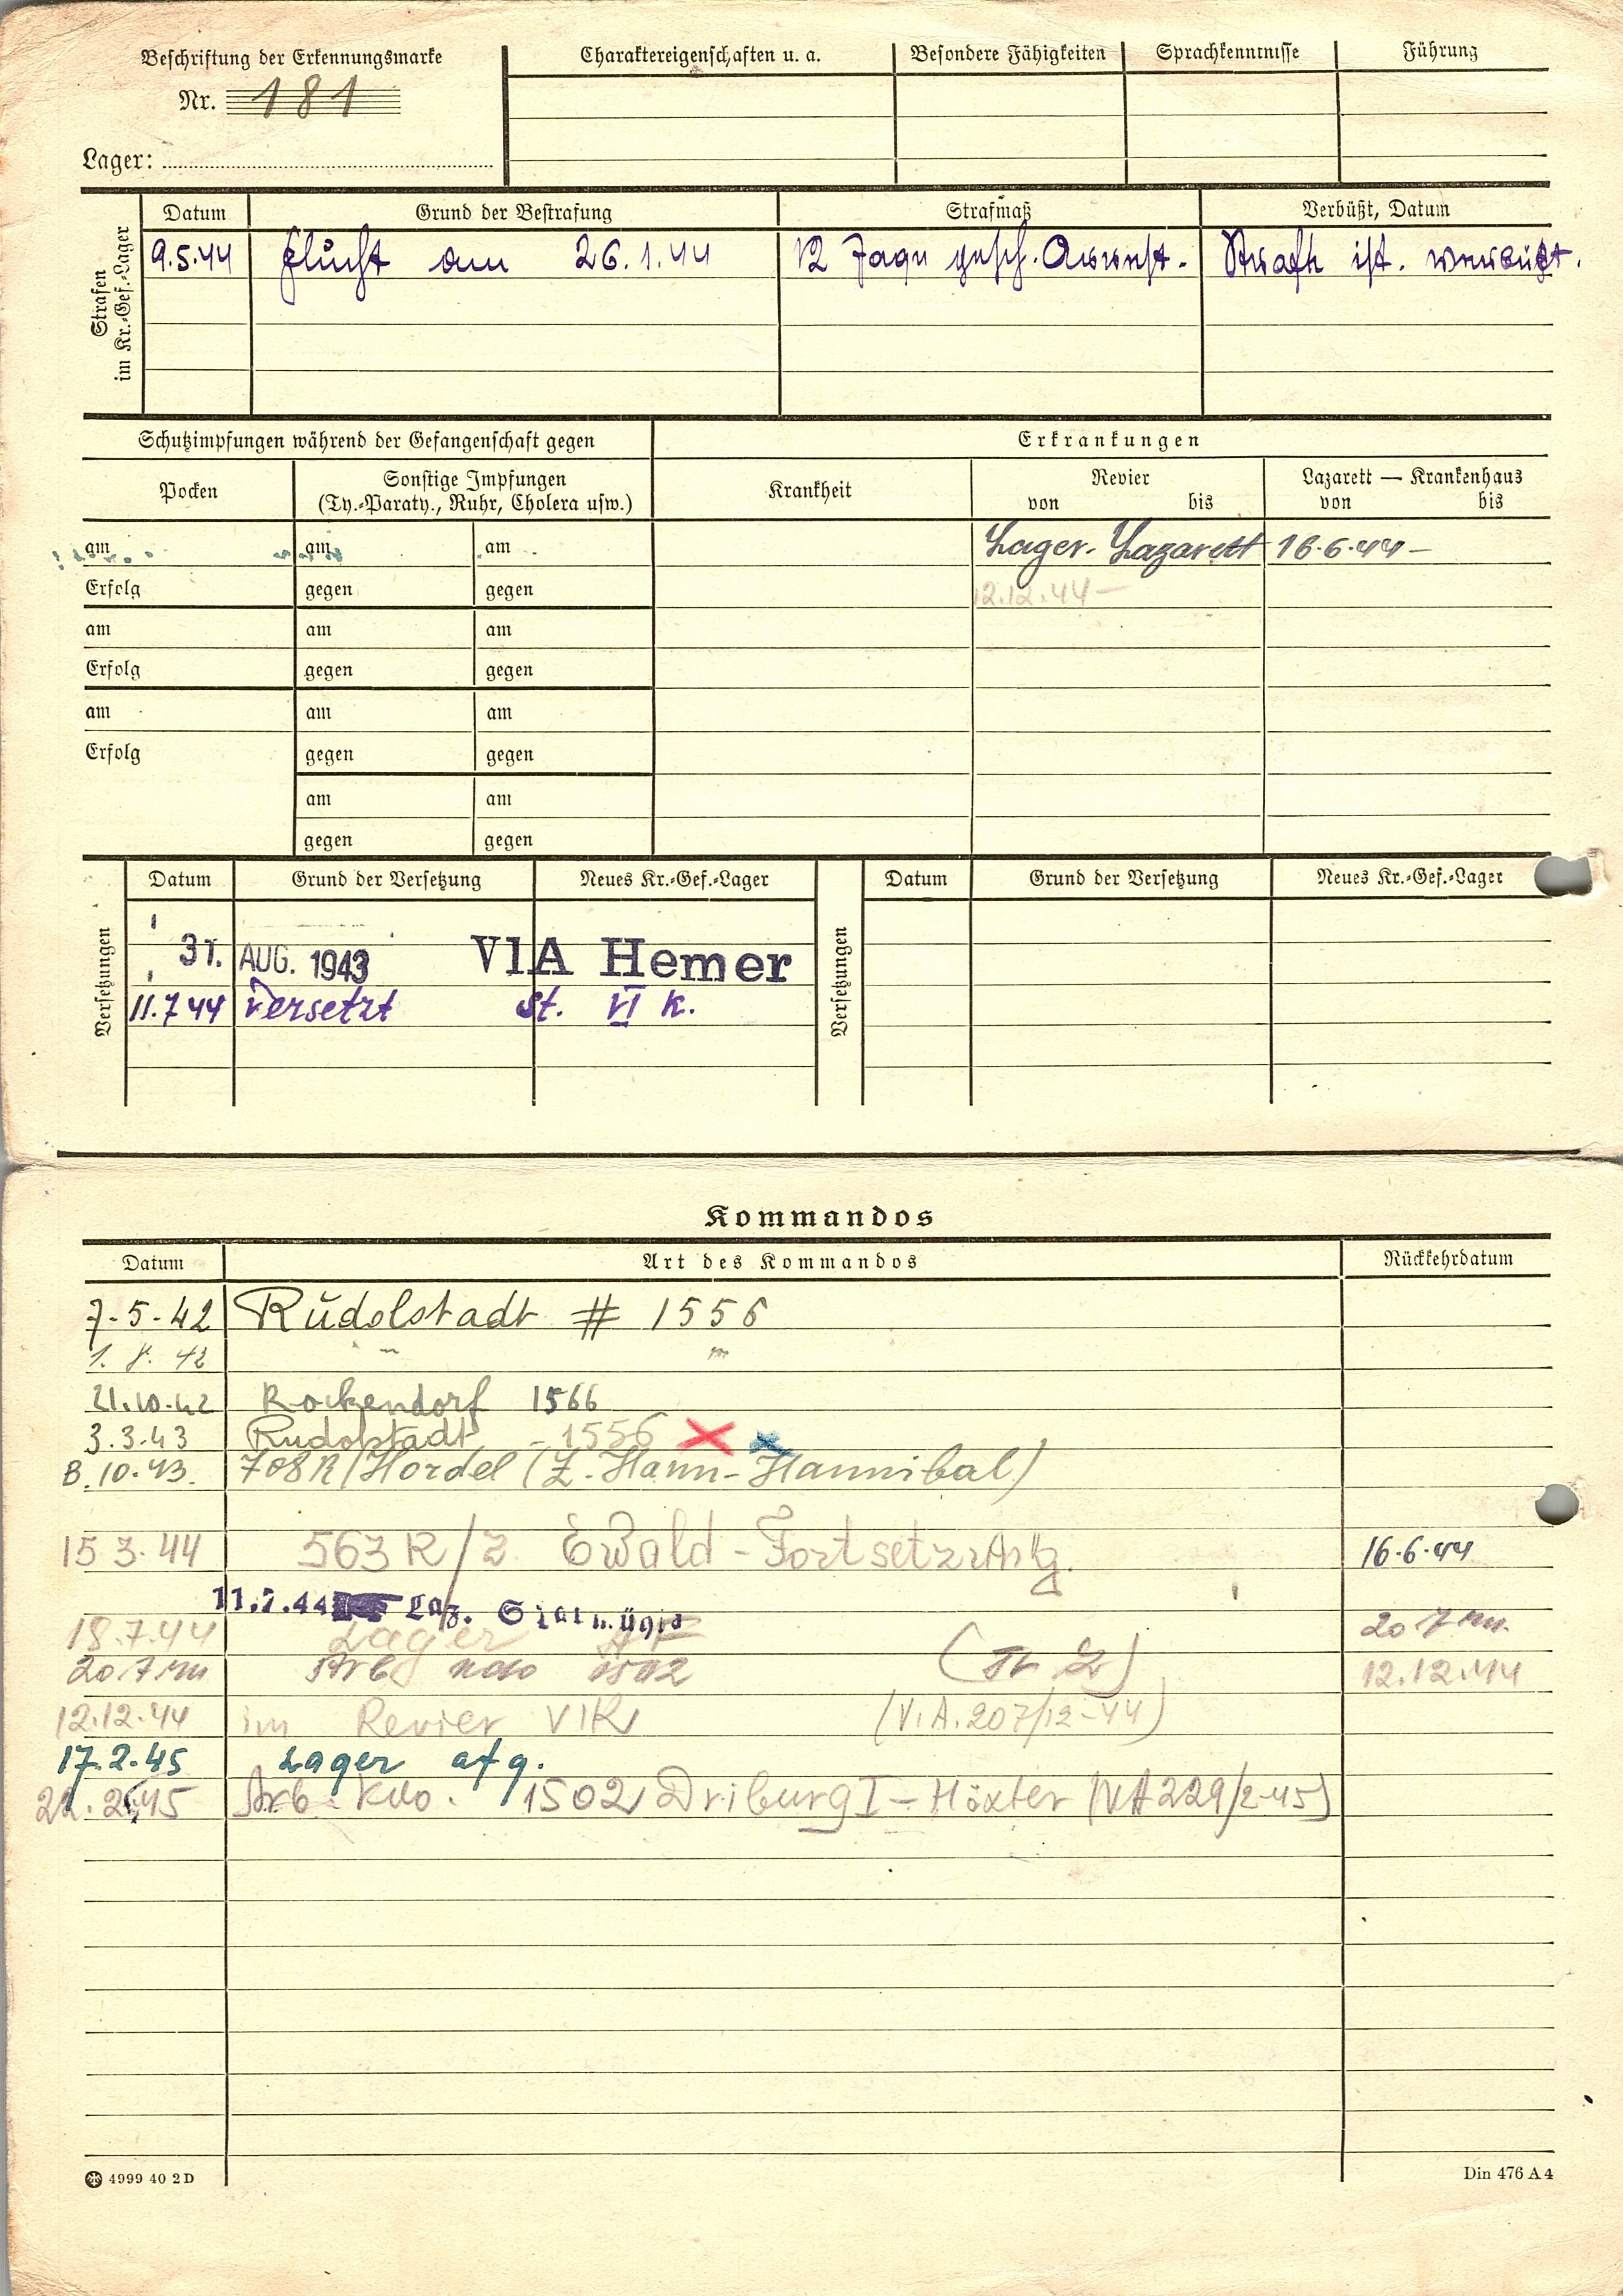 Beschriftung der Erkennungsmarke
Nr. 181
Lager:
Charaktereigenschaften u. a.
Besondere Fähigkeiten
Sprachkenntnisse
Führung
Strafen im Kr.-Gef.-Lager
Datum
Grund der Bestrafung
Strafmaß
Verbüßt, Datum
9.5.44 Flucht am 26.1.44 12 Tage gesch. Arrest. Strafe ist. verbüßt.
Schutzimpfungen während der Gefangenschaft gegen
Erkrankungen
Pocken
Sonstige Impfungen
(Ty.-Paraty., Ruhr, Cholera usw.)
Krankheit
Revier
von bis
Lazarett — Krankenhaus
von bis
am am am
Lager-Lazarett 16.6.44 –
Erfolg gegen gegen
12.12.44 –
am am am
Erfolg gegen gegen
am am am
Erfolg gegen gegen
am am
gegen gegen
Versetzungen
Datum Grund der Versetzung Neues Kr.-Gef.-Lager
31. AUG. 1943 VIA Hemer
11.7.44 versetzt St. VI K.
Versetzungen
Datum Grund der Versetzung Neues Kr.-Gef.-Lager
Kommandos
Datum Art des Kommandos Rückkehrdatum
7.5.42 Rudolstadt # 1556
1. 8. 42 " "
21.10.42 Rockendorf 1566
3.3.43 Rudolstadt - 1556
8.10.43. 708 R/Hordel (Z. Hann-Hannibal)
15 3.44 563 R/Z. Ewald-Fortsetzung. 16.6.44
11.7.44 Laz.
18.7.44 Lager 20 7 44
20 7 44 Arb kdo 1502 12.12.44
12.12.44 im Revier VIK (V.A.207/12-44)
17.2.45 Lager afg.
22.2.45 Arb. Kdo. 1502 Driburg I – Höxter (VA 229/2-45)
4999 40 2 D
Din 476 A 4